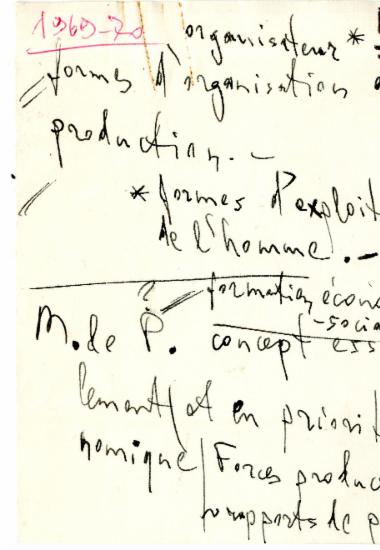 1969-70
organisateur *
formes d'organisation
production. –
* formes d'exploit
de l'homme. –
? formation, écono
M. de P. concept ess
-socia
lement/et en priorit
nomique/Forces produc
rapports de p